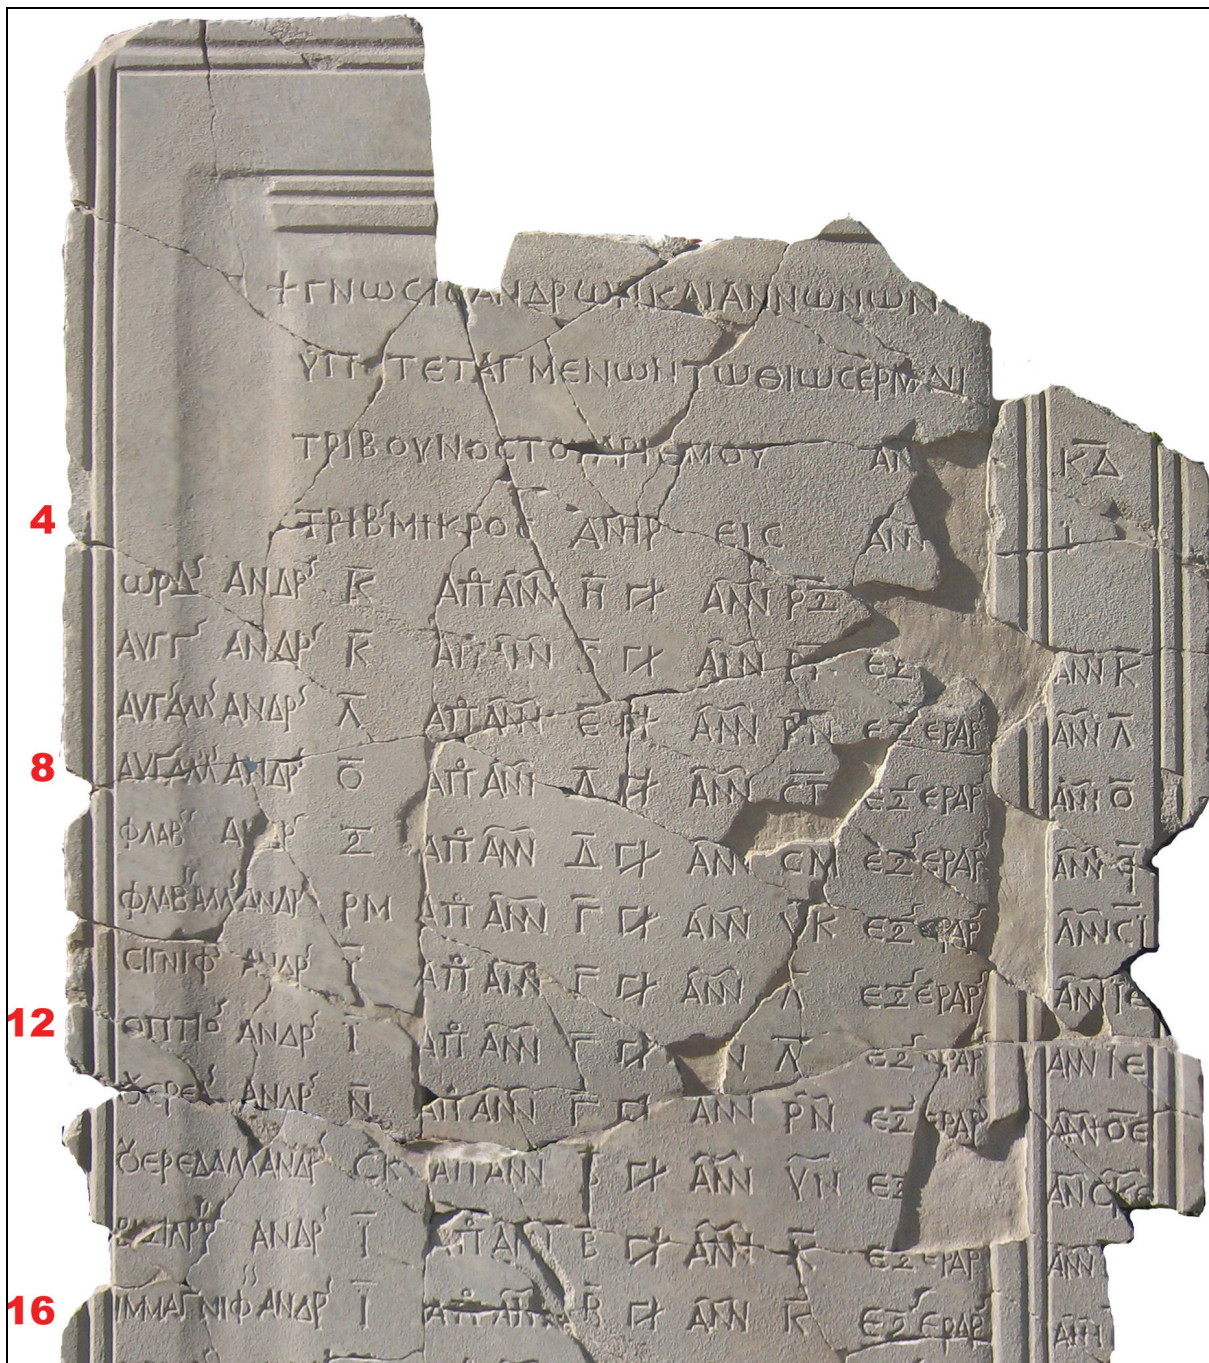 +ΓΝωCΙC ΑΝΔΡωΝ ΚΑΙ ΑΝΝωΝωΝ
ΤΕΤΑΓΜΕΝωΝ ΤωΘΙω CΕΡΜΟΝΙ
ΤΡΙΒΟΥΝΟC ΤΟΥ ΑΡΙΘΜΟΥ ΑΝ ΚΔ
4 ΤΡΙΒ ΜΙΚΡΟC ΑΝΗΡ ΕΙC ΑΝΝ Ι
ωΡΔ ΑΝΔΡ Κ ΑΠ ΑΝΝ Η ΓΧ ΑΝΝ ΡΞ
ΑΥΓΓ ΑΝΔΡ Κ ΑΠ ΓΧ ΑΝΝ ΕΞ ΑΝΝ Κ
ΑΥΓΑΛΛ ΑΝΔΡ Λ ΑΠ ΑΝΝ Ε ΓΧ ΑΝΝ ΡΝ ΕΞ ΕΡΑΡ ΑΝΝ Λ
8 ΑΥΓΑΛΛ ΑΝΔΡ Ο ΑΠ ΑΝΝ Δ ΓΧ ΑΝΝ ΕΞ ΕΡΑΡ ΑΝΝ Ο
ΦΛΑΒ ΑΝΔΡ Ξ ΑΠ ΑΝΝ Δ ΓΧ ΑΝΝ CΜ ΕΞ ΕΡΑΡ ΑΝΝ Ϙ
ΦΛΑΒΑΛΛ ΑΝΔΡ ΡΜ ΑΠ ΑΝΝ Γ ΓΧ ΑΝΝ ΥΚ ΕΞ ΕΡΑΡ ΑΝΝ CΙ
CΙΓΝΙΦ ΑΝΔΡ Ι ΑΠ ΑΝΝ Γ ΓΧ ΑΝΝ Λ ΕΞ ΕΡΑΡ ΑΝΝ ΙΕ
12 ΟΠΤΙΟ ΑΝΔΡ Ι ΑΠ ΑΝΝ Γ ΓΧ Ν Λ ΕΞ ΕΡΑΡ ΑΝΝ ΙΕ
ȢΕΡΕΔ ΑΝΔΡ Ν ΑΠ ΑΝΝ Γ ΓΧ ΑΝΝ ΡΝ ΕΞ ΕΡΑΡ ΑΝΝ ΟΕ
ȢΕΡΕΔΑΛΛ ΑΝΔΡ CΚ ΑΠ ΑΝΝ Β ΓΧ ΑΝΝ ΥΜ ΕΞ ΑΝ CΚΕ
ΑΝΔΡ Ι ΑΠ ΑΝΝ Β ΓΧ ΑΝΝ Κ ΕΞ ΕΡΑΡ ΑΝΝ
16 ΙΜΜΑΓΝΙΦ ΑΝΔΡ Ι ΑΠ ΑΝΝ Β ΓΧ ΑΝΝ Κ ΕΞ ΕΡΑΡ ΑΝΝ